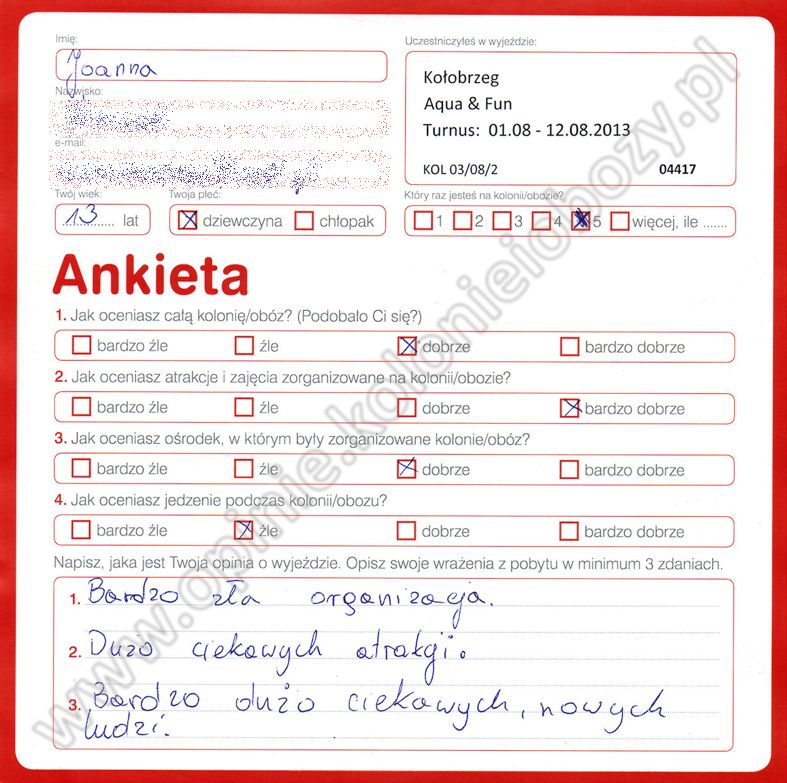 Imię:
Joanna
Nazwisko:
e-mail:
Uczestniczyłeś w wyjeździe:
Kołobrzeg
Aqua & Fun
Turnus: 01.08 - 12.08.2013
KOL 03/08/2 04417
Twój wiek:
13 lat
Twoja płeć:
dziewczyna chłopak
Który raz jesteś na kolonii/obozie?
1 2 3 4 5 więcej, ile .......
Ankieta
1. Jak oceniasz całą kolonię/obóz? (Podobało Ci się?)
bardzo źle źle dobrze bardzo dobrze
2. Jak oceniasz atrakcje i zajęcia zorganizowane na kolonii/obozie?
bardzo źle źle dobrze bardzo dobrze
3. Jak oceniasz ośrodek, w którym były zorganizowane kolonie/obóz?
bardzo źle źle dobrze bardzo dobrze
4. Jak oceniasz jedzenie podczas kolonii/obozu?
bardzo źle źle dobrze bardzo dobrze
Napisz, jaka jest Twoja opinia o wyjeździe. Opisz swoje wrażenia z pobytu w minimum 3 zdaniach.
1. Bardzo zła organizacja.
2. Dużo ciekawych atrakcji.
3. Bardzo dużo ciekawych, nowych
ludzi.
www.opinie.kolonieiobozy.pl